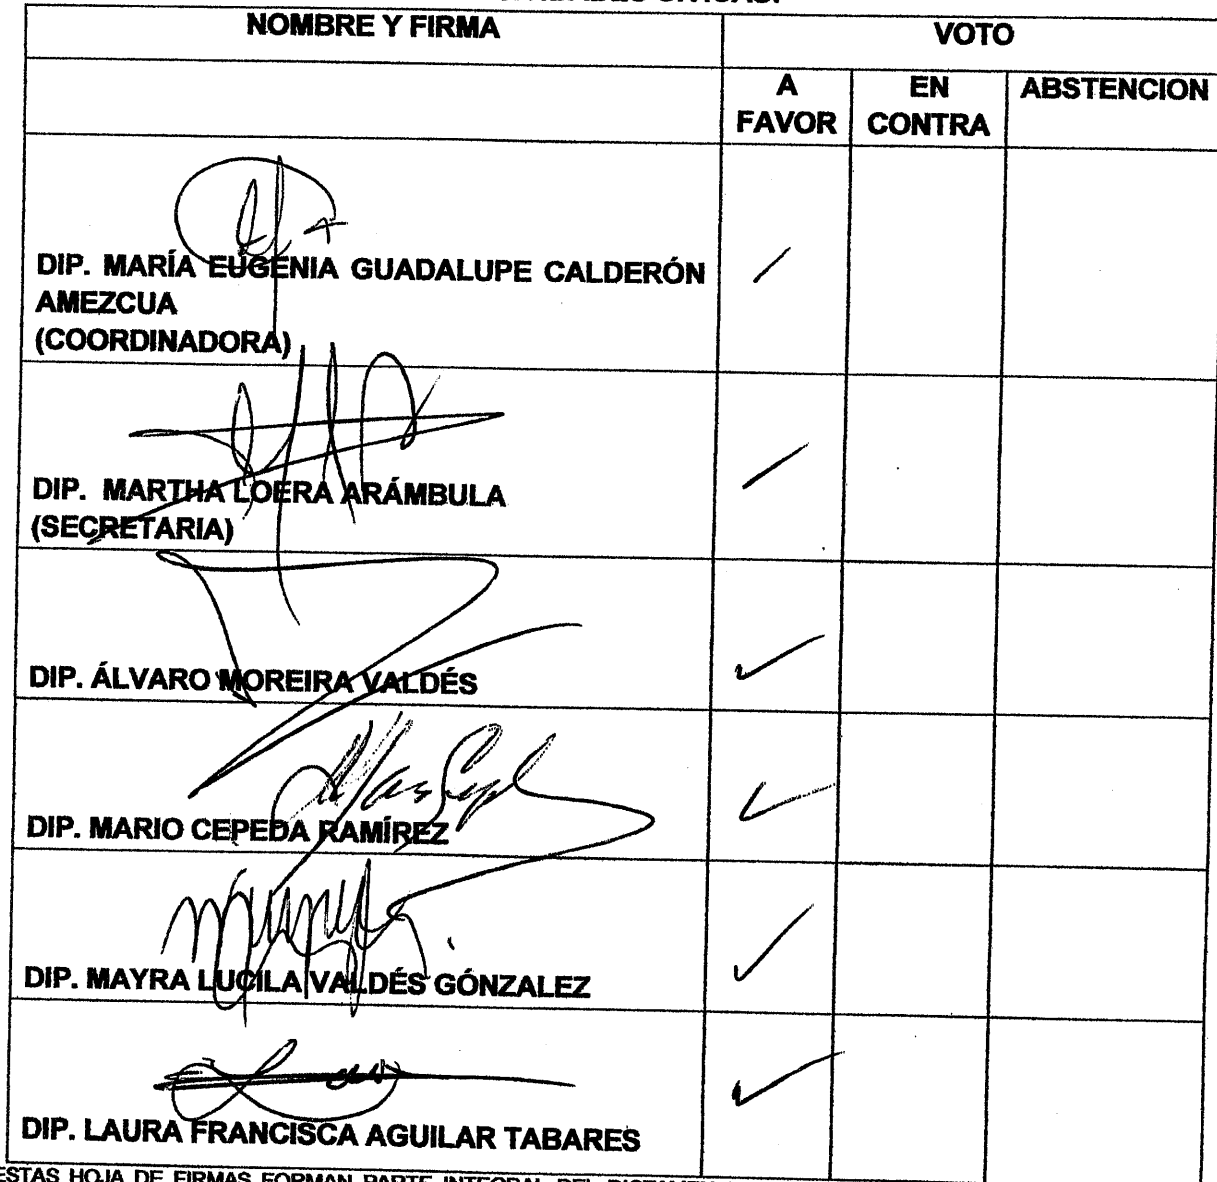 NOMBRE Y FIRMA
VOTO
A FAVOR
EN CONTRA
ABSTENCION
DIP. MARÍA EUGENIA GUADALUPE CALDERÓN
AMEZCUA
(COORDINADORA)
DIP. MARTHA LOERA ARÁMBULA
(SECRETARIA)
DIP. ÁLVARO MOREIRA VALDÉS
DIP. MARIO CEPEDA RAMÍREZ
DIP. MAYRA LUCILA VALDÉS GÓNZALEZ
DIP. LAURA FRANCISCA AGUILAR TABARES
ESTAS HOJA DE FIRMAS FORMAN PARTE INTEGRAL DEL